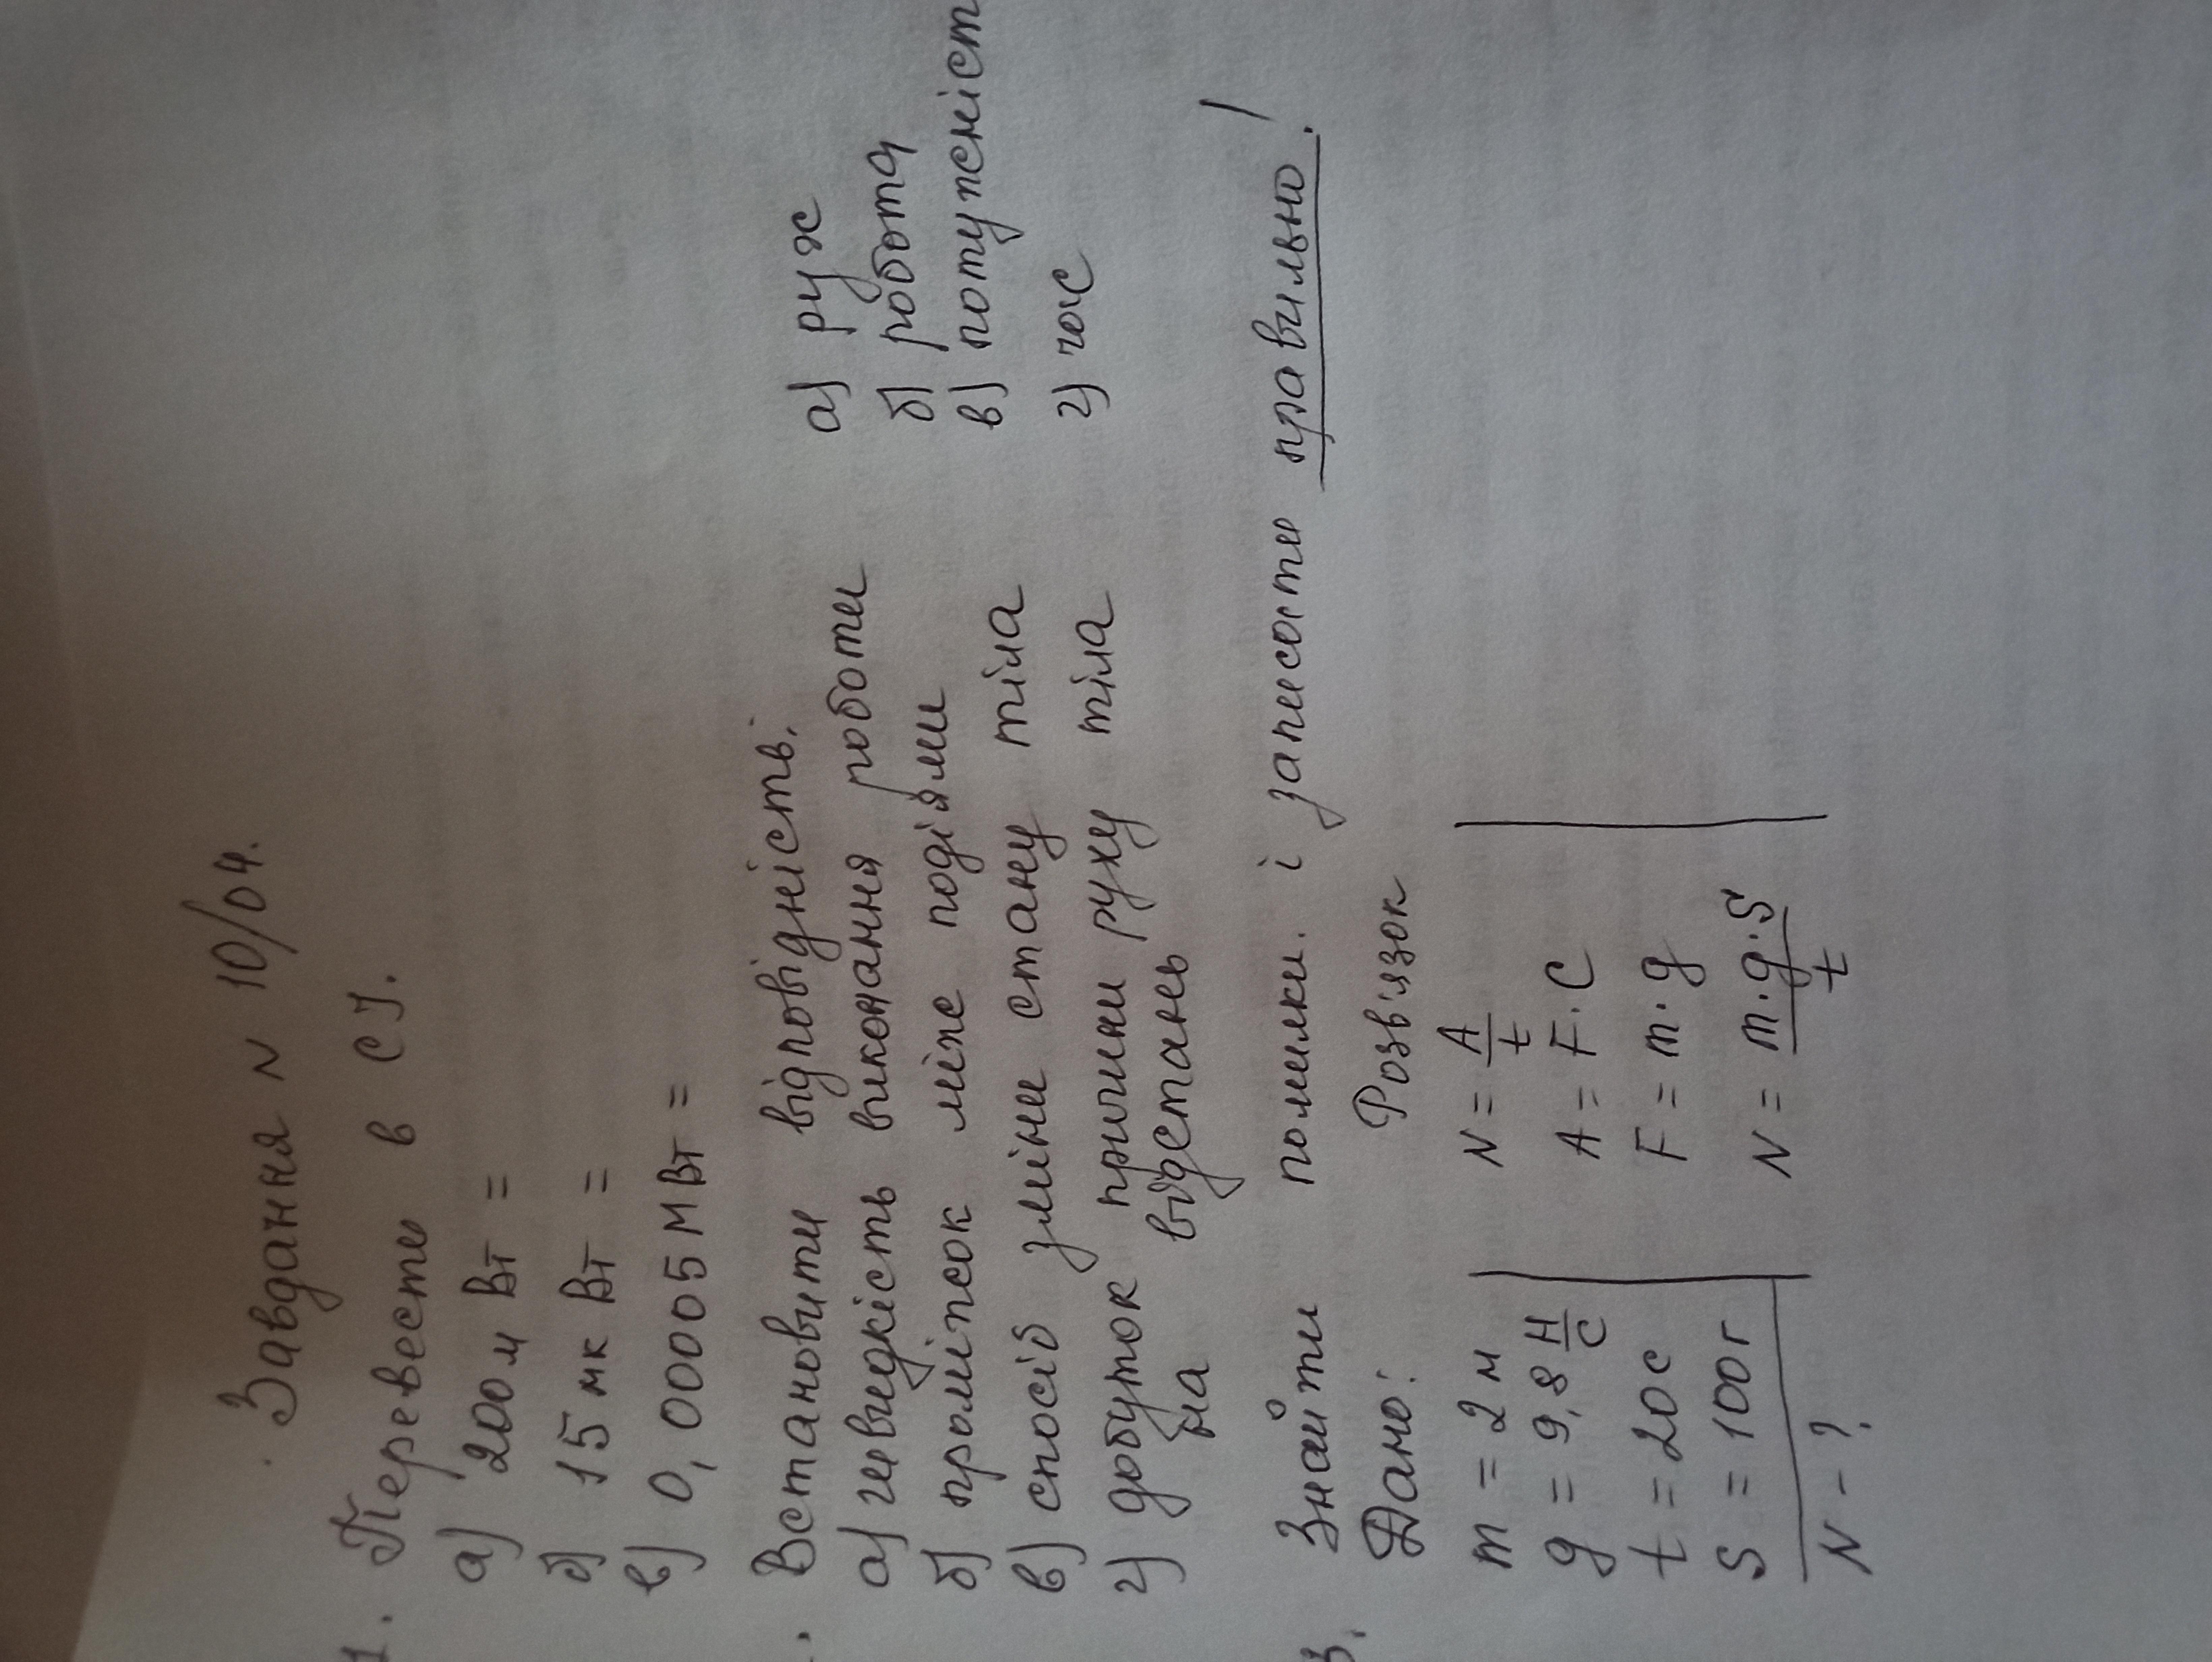 Завдання N 10/04.
1. Перевести в СІ.
а) 200 м Вт =
б) 15 мк Вт =
в) 0,00005 МВт =
. Встановити відповідність.
а) швидкість виконання роботи а) рух
б) проміжок між подіями б) робота
в) спосіб зміни стану тіла в) потужніст
г) добуток причини руху тіла г) час
на відстань
3. Знайти помилки і записати правильно!
Дано: Розв'язок
m = 2 м N = A/t
g = 9,8 Н/с A = F · C
t = 20 с F = m · g
S = 100 г N = m · g · S/t
N - ?